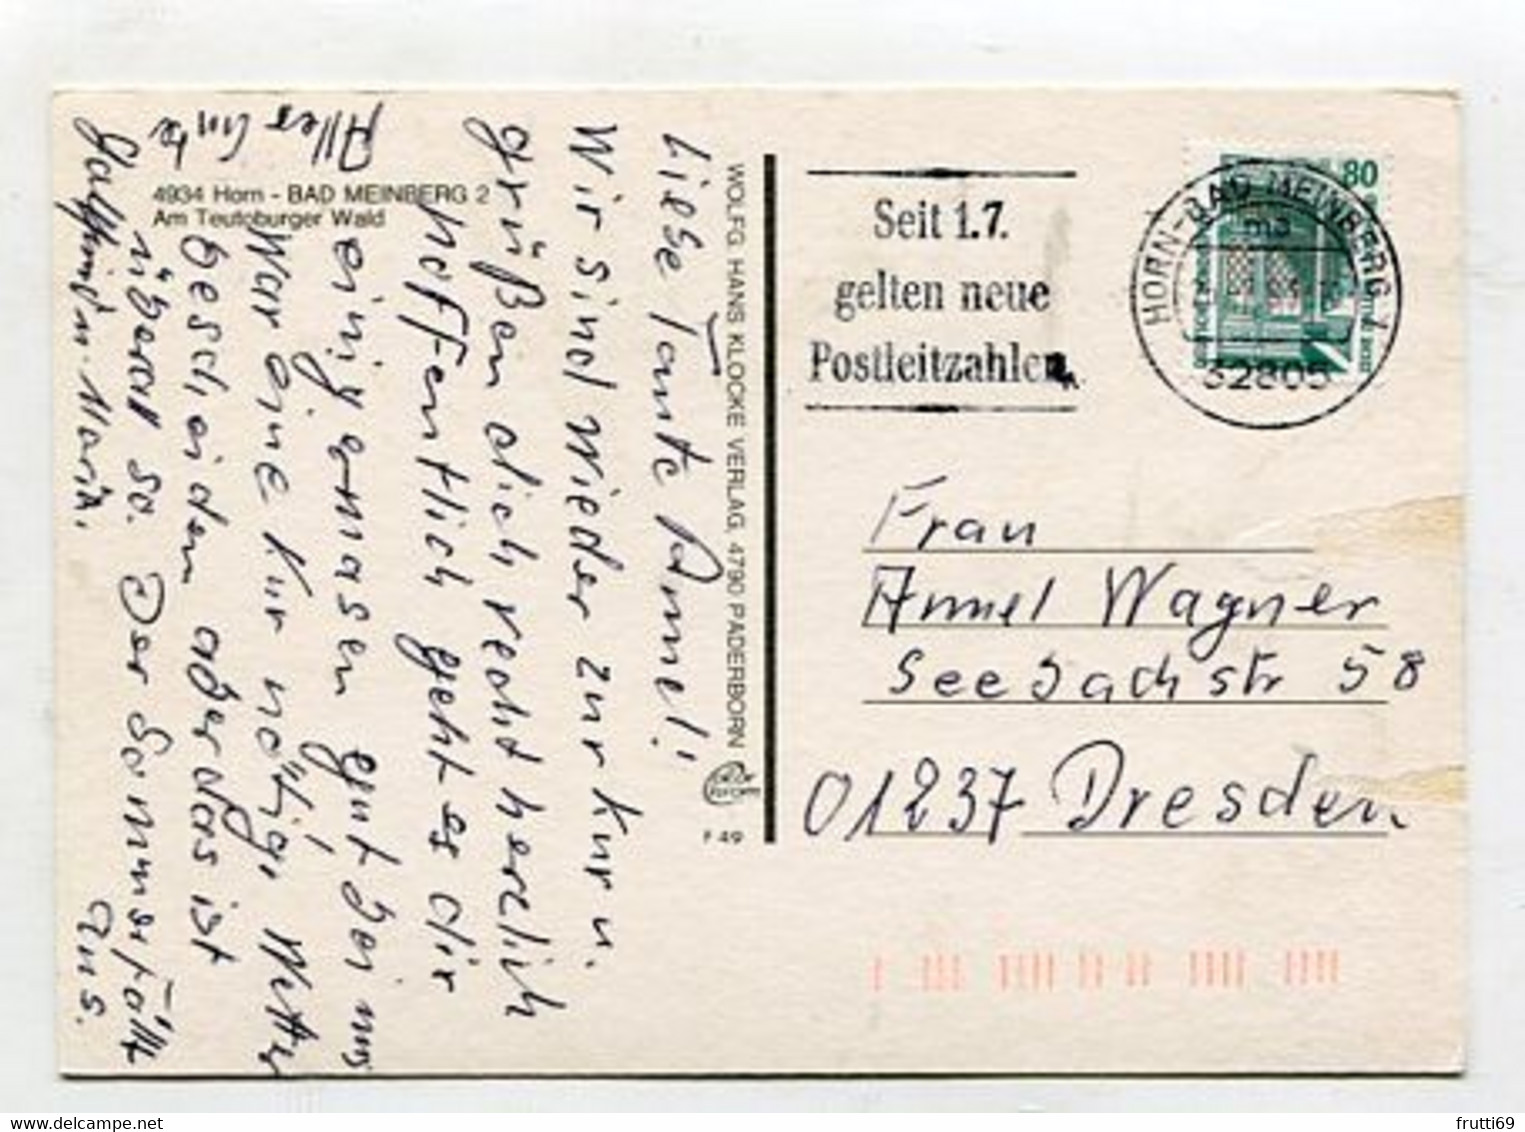 4934 Horn - BAD MEINBERG 2
Am Teutoburger Wald
Liebe Tante Annel!
Wir sind wieder zur Kur u.
grüßen dich recht herzlich
hoffentlich geht es dir
einigermasen gut bei uns
war eine Kur nötig, Wetter
bescheiden aber das ist
überal so. Der Sommer fällt
aus.
Alles Gute
WOLFG HANS KLOCKE VERLAG, 4790 PADERBORN
F 49
Seit 1.7.
gelten neue
Postleitzahlen.
80
HORN-BAD MEINBERG 1
ma
32805
Frau
Annel Wagner
Seebachstr 58
01237 Dresden
delcampe.net
frutti69